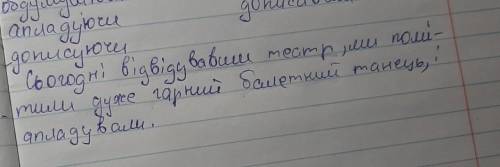 дописа
апладуючи
дописуючи
Сьогодні відвідувавши театр, ми помі-
тили дуже гарний балетний танець, і
апладували.